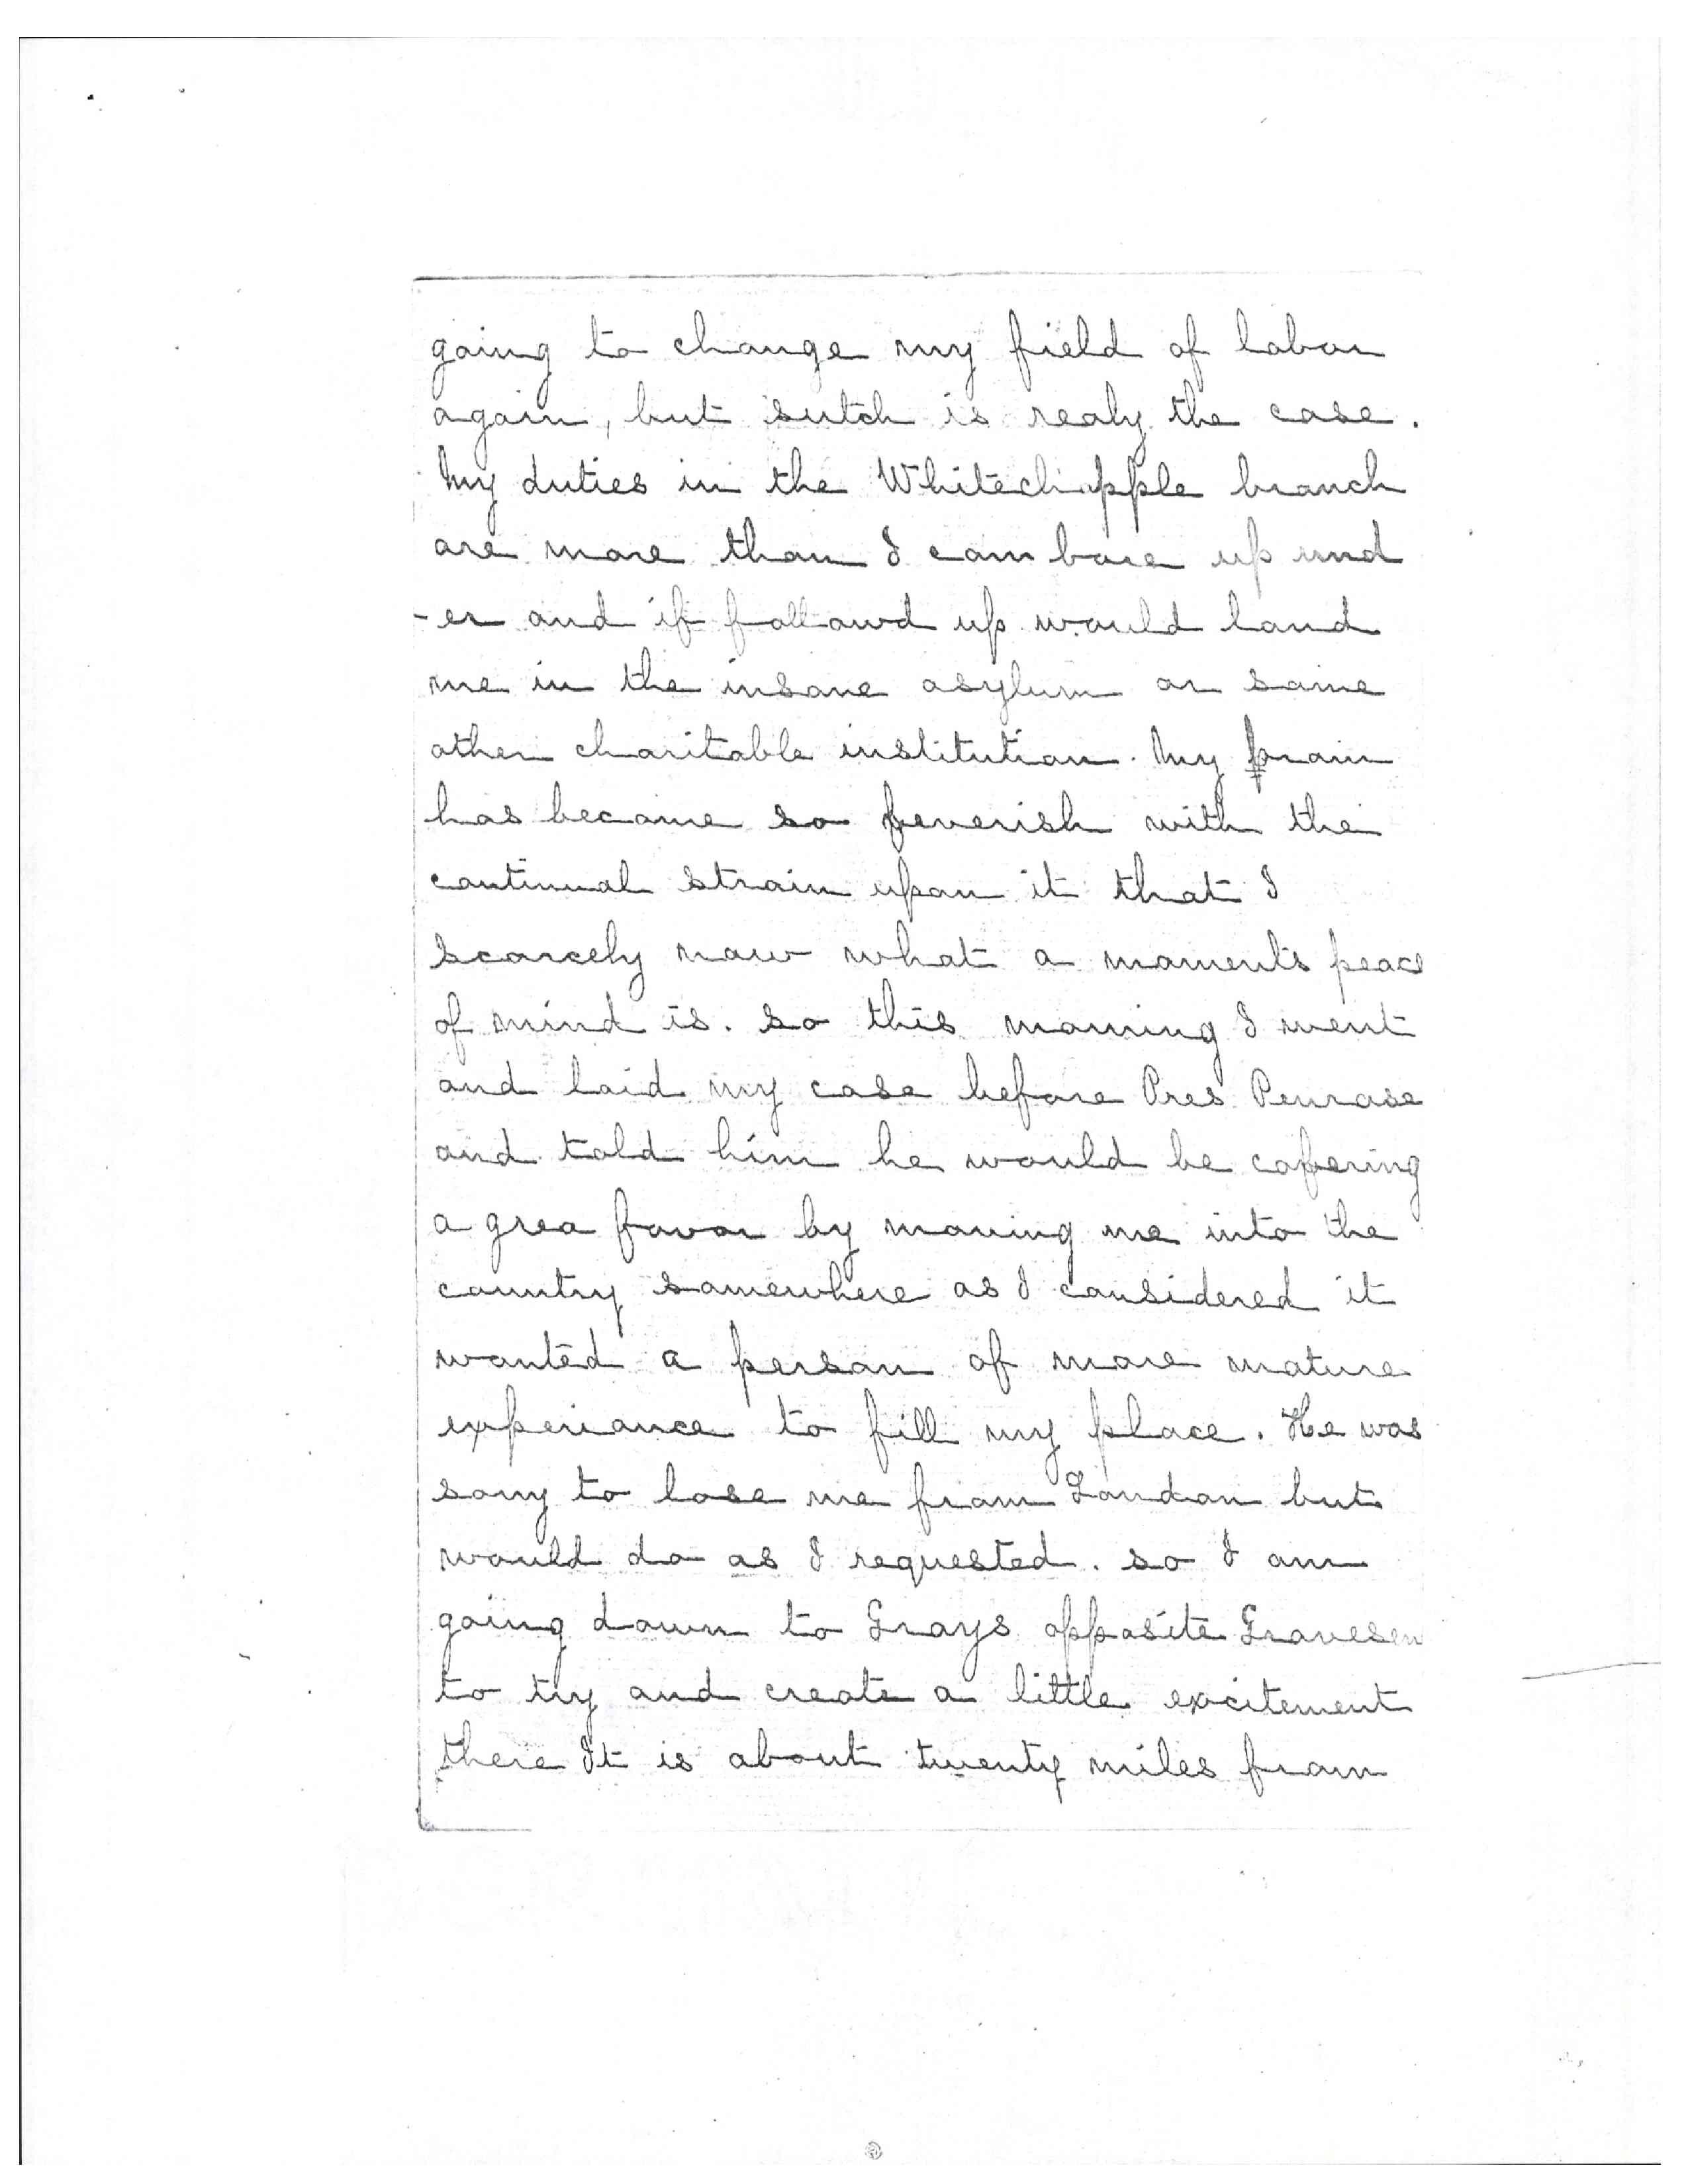 going to change my field of labor
again, but sutch is realy the case.
My duties in the Whitechipple branch
are more than I can bare up und
-er and if followd up would land
me in the insane asylum or some
other charitable institution. My brain
has become so feverish with the
continual strain upon it that I
scarcely now what a moments peace
of mind is. so this morning I went
and laid my case before Pres Penrose
and told him he would be cofering
a grea favor by moving me into the
country somewhere as I considered it
wanted a person of more mature
experiance to fill my place. He was
sorry to lose me from London but
would do as I requested. so I am
going down to Grays opposite Gravesen
to try and create a little excitement
there It is about twenty miles from